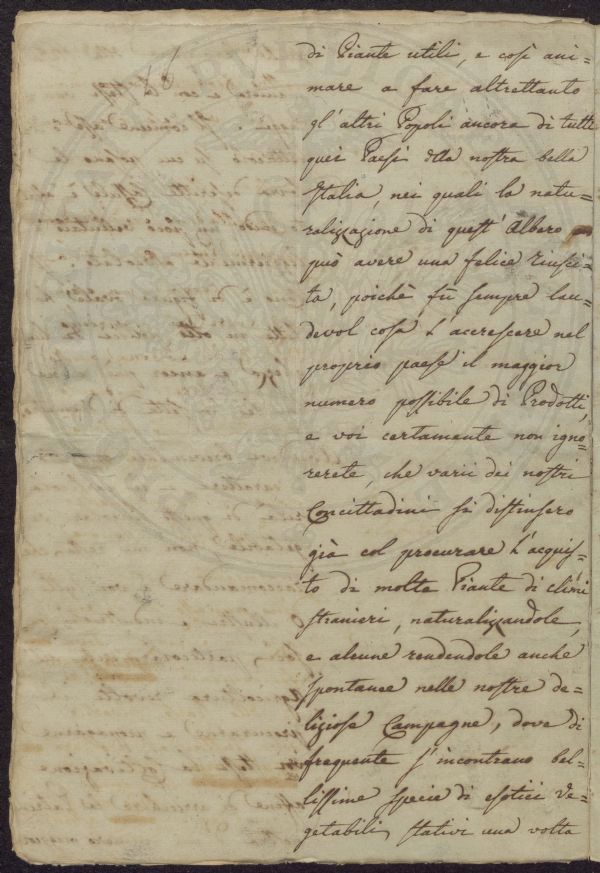 di Piante utili, e così ani=
mare a fare altrettanto
gl'altri Popoli ancora di tutti
quei Paesi della nostra bella
Italia, nei quali la natu=
ralizzazione di quest'Albero
può avere una felice riusci=
ta, poichè fù sempre lau=
devol cosa l'accrescere nel
proprio paese il maggior
numero possibile di Prodotti,
e voi certamente non igno=
rerete, che varii dei nostri
Concittadini si distinsero
già col procurare l'acquis=
to di molte Piante di climi
stranieri, naturalizzandole,
e alcune rendendole anche
spontanee nelle nostre de=
liziose Campagne, dove di
frequente s'incontrano bel=
lissime specie di esotici ve=
getabili, stativi una volta